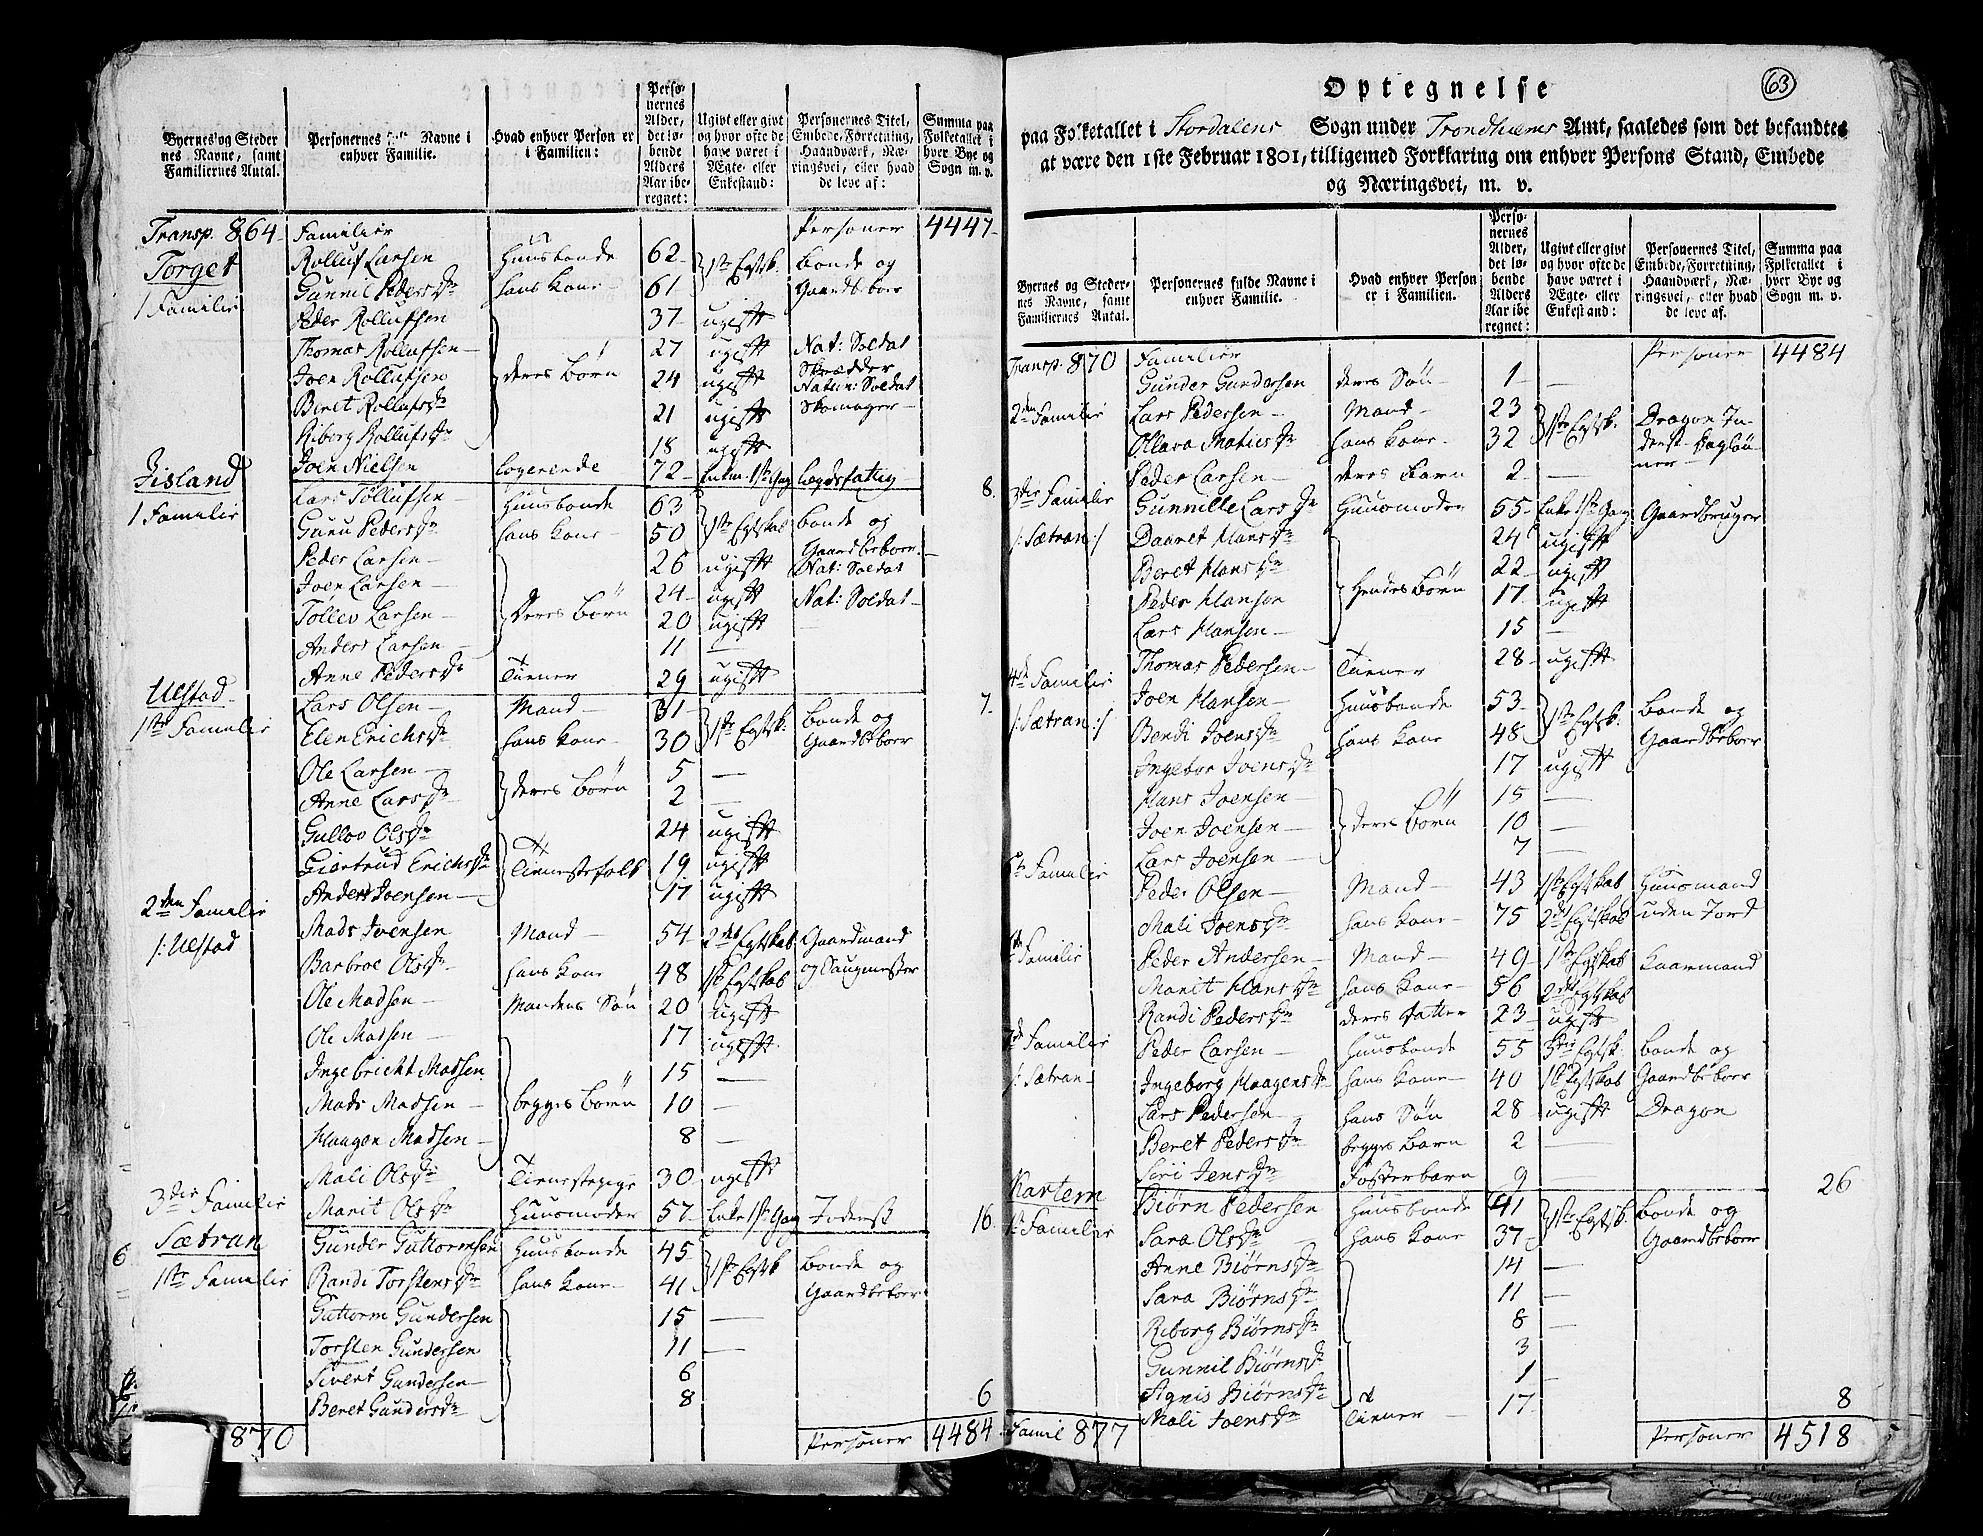 Byernes og Steder
nes Navne, samt
Familiernes Antal.
Personernes fulde Navne i
enhver Familie.
Hvad enhver Person er
i Familien:
Perso-
nernes
Alder,
det lø-
bende
Alders
Aar ibe
regnet:
Ugivt eller givt
og hvor ofte de
have været i
Ægte- eller
Enkestand:
Personernes Titel,
Embede, Forretning,
Haandværk, Næ-
ringsvei, eller hvad
de leve af:
Summa paa
Folketallet i
hver Bye og
Sogn m. v.
Transp. 864 Familier Personer 4447
Torget Rolluf Larsen Huusbonde 62 1ste Egtsk. Bonde og
Gunnil Pedersdr hans Kone 61 Gaardbeboer
1 Familie Peder Rollufsen 37 ugift
Thomas Rollufsen 27 ugift Nat: Soldat
Joen Rollufsen deres Børn 24 ugift Skrædder Natur: Soldat
Beret Rollufsdr 21 ugift Skomager
Riborg Rollufsdr 18 ugift
Joen Nielsen Logerende 72 Enkem. 1ste Gag Lægdsfattig 8
Gisland Lars Tollufsen Huusbonde 63 1ste Egtskab Bonde og
1 Familie Guru Pedersdr hans Kone 50 Gaardbeboer
Peder Larsen 26 ugift Nat: Soldat
Joen Larsen 24 ugift Nat: Soldat
Tollev Larsen Deres Børn 20 ugift
Anders Larsen 11
Anne Pedersdr Tiener 29 ugift 7
Ulstad Lars Olsen Mand 31 1ste Egtsk. Bonde og
1ste Familie Elen Erichsdr hans Kone 30 Gaardbeboer
Ole Larsen deres Børn 5
Anne Larsdr 2
Gullov Olsdr 24 ugift
Giertrud Erichsdr Tienestefolk 19 ugift
Anders Joensen 17 ugift
2den Familie Mads Joensen Mand 54 2det Egtskab Gaardmand
/: Ulstad Barbroe Olsdr hans Kone 48 1ste Egtskab
Ole Madsen Mandens Søn 20 ugift
Ole Madsen 17 ugift
Ingebricht Madsen 15
Mads Madsen begges Børn 10
Haagen Madsen 8
Mali Olsdr Tienestepige 30 ugift
3die Familie Marit Olsdr Huusmoder 57 Enke 1ste Gag Inderst 16
Sætran Gunder Guttormsen Huusbonde 45 1ste Egtsk Bonde og
6
1ste Familie Randi Torstensdr hans Kone 41 Gaardbeboer
Guttorm Gundersen 15
Torsten Gundersen 11
Sivert Gundersen 6
Beret Gundersdr 8 6
870 Personer 4484
63
Optegnelse
paa Folketallet i Stordalens Sogn under Trondhiems Amt, saaledes som det befandtes
at være den 1ste Februar 1801, tilligemed Forklaring om enhver Persons Stand, Embede
og Næringsvei, m. v.
Byernes og Steder-
nes Navne, samt
Familiernes Antal.
Personernes fulde Navne i
enhver Familie.
Hvad enhver Person
er i Familien.
Perso-
nernes
Alder,
det lø-
bende
Alders
Aar ibe
regnet:
Ugivt eller givt
og hvor ofte de
have været i
Ægte- eller
Enkestand:
Personernes Titel,
Embede, Forretning,
Haandværk, Næ-
ringsvei, eller hvad
de leve af.
Summa paa
Folketallet i
hver Bye og
Sogn m. v.
Transp. 870 Familier Personer 4484
Gunder Gundersen deres Søn 1
2den Familie Lars Pedersen Mand 23 1ste Egtsk. Dragon In-
Ollava Matiesdr hans Kone 32 derst Dagløn-
Peder Larsen deres Barn 2 ner
3die Familie Gunnille Larsdr Huusmoder 55 Enke 1ste Gang Gaardbruger
/: Sætran :/ Daaret Hansdr 24 ugift
Beret Hansdr 22 ugift
Peder Hansen Hendes Børn 17 ugift
Lars Hansen 15
Thomas Pedersen Tiener 28 ugift
4de Familie Joen Hansen Huusbonde 53 1ste Egtsk. Bonde og
/: Sætran :/ Bendi Joensdr hans Kone 48 Gaardbeboer
Ingebor Joensdr 17 ugift
Hans Joensen 15
Joen Joensen deres Børn 10
Lars Joensen 7
5te Familie Peder Olsen Mand 43 1ste Egtskab Huusmand
Mali Joensdr hans Kone 75 2det Egtskab uden Jord
6te Familie Peder Andersen Mand 49 1ste Egtskab Kaarmand
Marit Hansdr hans Kone 56 2det Egtskab
Randi Pedersdr deres Datter 23 ugift
7de Familie Peder Larsen Huusbonde 55 3die Egtsk. Bonde og
/: Sætran Ingeborg Haagensdr hans Kone 40 1ste Egtskab Gaardbeboer
Lars Pedersen hans Søn 28 ugift Dragon
Beret Pedersdr begges Barn 2
Siri Jensdr Fosterbarn 9 26
Kartem Biørn Pedersen Huusbonde 41 1ste Egtsk. Bonde og
1ste Familie Sara Olsdr hans Kone 37 Gaardbeboer
Anne Biørnsdr 14
Sara Biørnsdr 11
Riborg Biørnsdr 8
Gunnil Biørnsdr 3
Agnis Biørnsdr 1
Mali Joensdr Tiener 17 8
Famil 877 Personer 4518